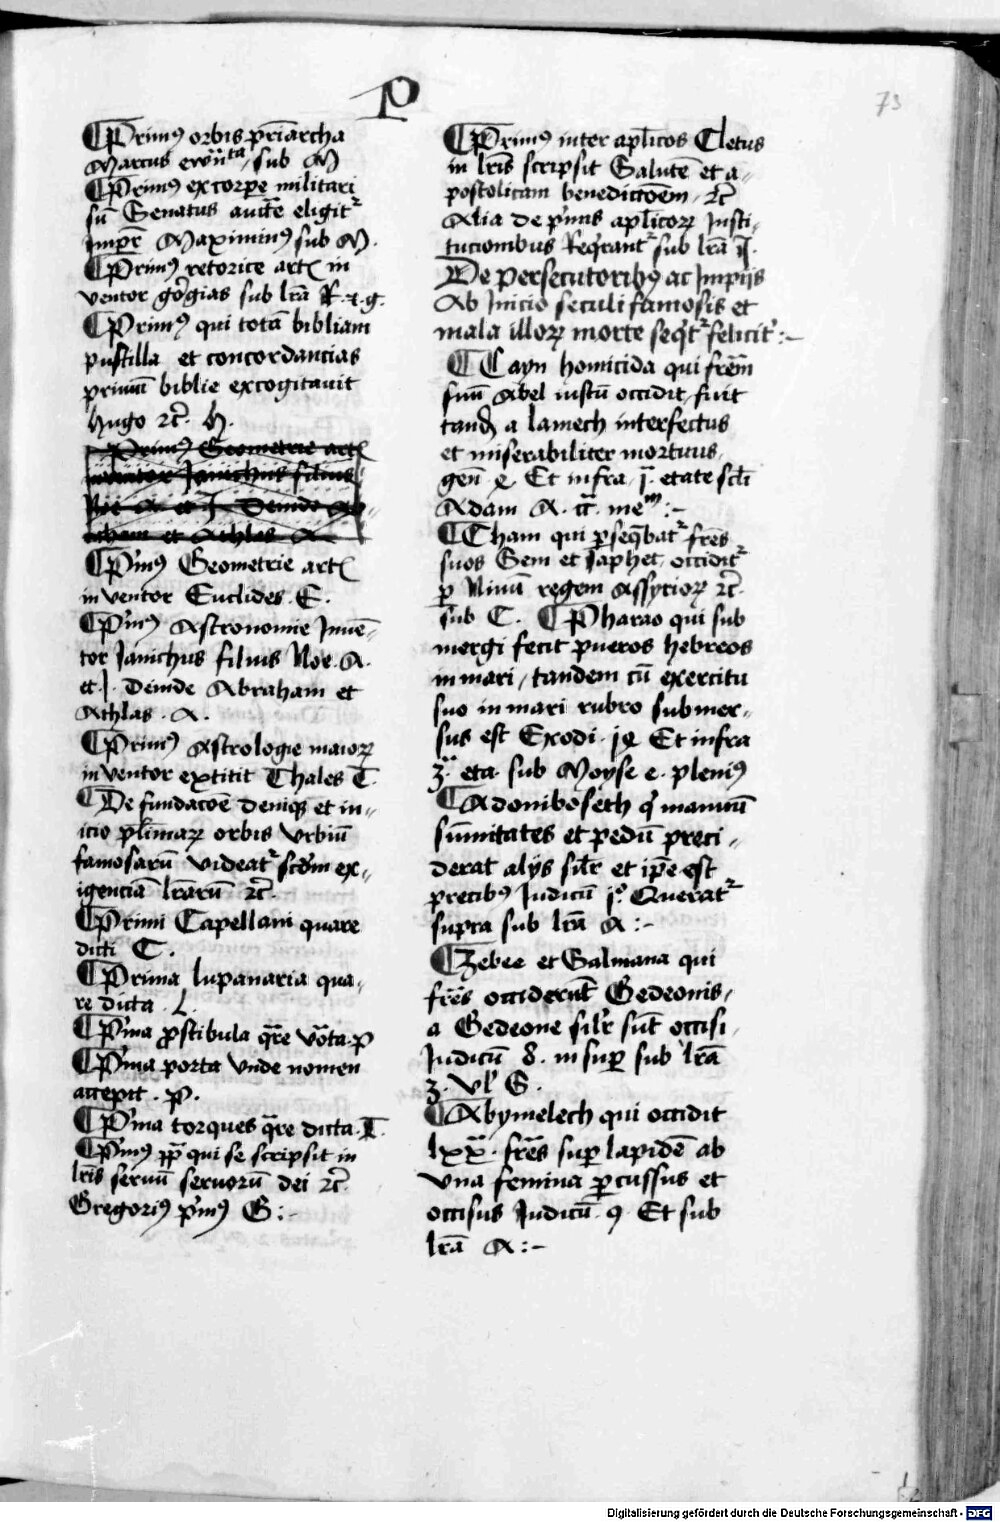 P
73
Primꝰ orbis pri̅archa
Marcus sub M
Primꝰ ex corpe militari
su̅ Senatus eligit᷑
Impe̅r Maximinꝰ sub M.
Primꝰ retorice art in
ventor gorgias sub lr̅a R. et. g.
Primꝰ qui tota̅ bibliam
pustilla et concordancias
primu̅ biblie excogitauit
hugo ꝛc̅. h.
Primꝰ Geometrie art
inventor Janichus filius
Noe A. et J. Deinde Ab-
raham et Athlas A
P'mꝰ Geometrie art
inventor Euclides. E.
P'mꝰ Astronomie Inue̅-
tor Janichus filius Noe. A.
et. J. Deinde Abraham et
Athlas. A.
Primꝰ Astrologie maioꝝ
inventor extitit Thales T.
De fundac̅oe̅ deniqꝫ et in-
icio pl̅imaꝝ orbis vrbiu̅
famosaru̅ videat᷑ scd̅m ex-
igencia̅ lr̅aru̅ ꝛc̅.
Primi Capellani quare
dicti C.
Prima lupanaria qua-
re dicta. L.
P'ma ꝓstibula q̅re vo̅ta. p
P'ma porta vnde nomen
accepit. p.
P'ma torques q̅re dicta. T.
P'mꝰ pp̅ qui se scripsit in
lr̅is seruu̅ seruoru̅ dei ꝛc̅.
Gregoriꝰ p'mꝰ G:-
Primꝰ inter apl̅icos Cletus
in lr̅is scripsit Salute̅ et a-
postolicam benedicc̅oe̅m, ꝛc̅
Alia de p'mis apl̅icoꝝ Insti-
tucionibus Req̅rant᷑ sub lr̅a I.
De persecutoribꝰ ac Impijs
Ab Inicio seculi famosis et
mala illoꝝ morte seq̅t᷑ felicit':-
Cayn homicida qui fr̅em
suu̅ Abel iustu̅ occidit, fuit
tand̅ a lamech interfectus
et miserabiliter mortuus,
gen̅. 4. Et infra. j. etate scl̅i
Adam A. me̅:-
Cham qui p̱seq̅bat᷑ fr̅es
suos Sem et Japhet, occidit᷑
p̱ Ninu̅ regem Assyrioꝝ ꝛc̅.
sub C. Pharao qui sub
mergi fecit pueros hebreos
in mari, tandem cu̅ exercitu
suo in mari rubro submer-
sus est Exodi. 14 Et infra
3. eta. sub Moyse e. pleniꝰ
Adoniboseth q' manuu̅
su̅mitates et pedu̅ preci-
derat alijs sil̅r et ip̅e est
precibꝰ Judicu̅ j.° Querat᷑
supra sub lr̅a A:-
Zebee et Salmana qui
fr̅es occideru̅t Gedeonis,
a Gedeone sil̅r su̅t occisi,
Judicu̅ 8. in sup̱ sub lr̅a
z. vl' G.
Abymelech qui occidit
lxx. fr̅es sup̱ lapide̅ ab
vna femina p̱cussus et
occisus Judicu̅. 9 Et sub
lr̅a A:-
Digitalisierung gefördert durch die Deutsche Forschungsgemeinschaft - DFG